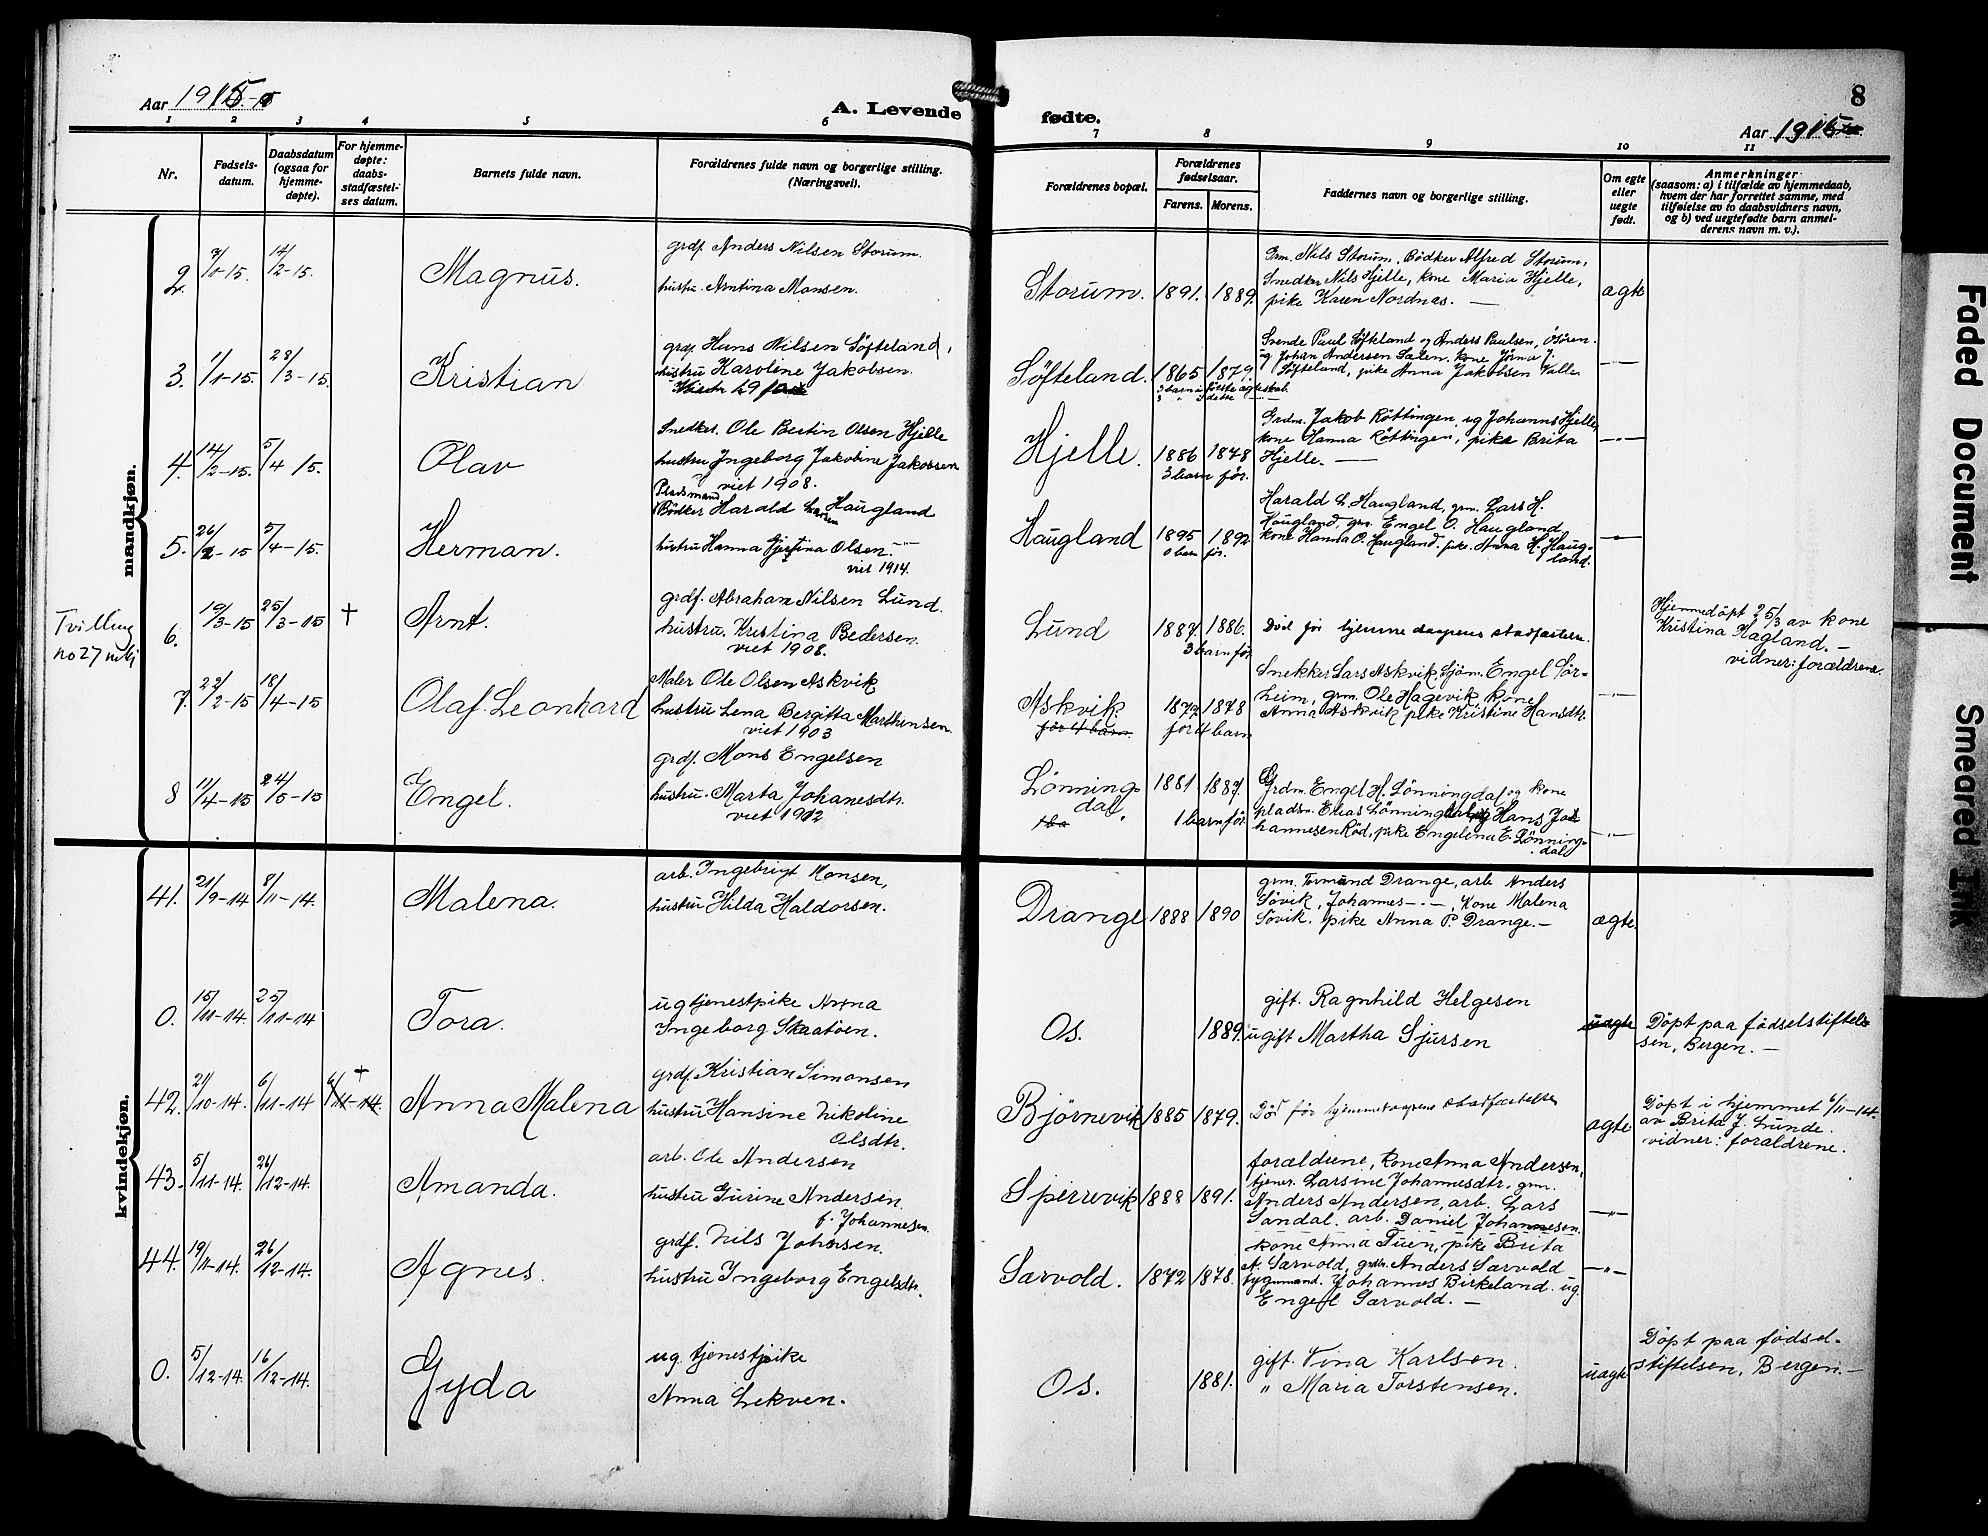 Aar 1915
A. Levende
fødte.
8
Aar 1915
1 2 3 4 5 6 7 8 9 10 11
Nr.
Fødsels-
datum.
Daabsdatum
(ogsaa for
hjemme-
døpte).
For hjemme-
døpte:
daabs-
stadfæstel-
ses datum.
Barnets fulde navn.
Forældrenes fulde navn og borgerlige stilling.
(Næringsvei).
Forældrenes bopæl.
Forældrenes
fødselsaar.
Farens. Morens.
Faddernes navn og borgerlige stilling.
Om egte
eller
uegte
født.
Anmerkninger
(saasom: a) i tilfælde av hjemmedaab,
hvem der har forrettet samme, med
tilføielse av to daabsvidners navn,
og b) ved uegtefødte barn anmel-
derens navn m. v.).
mandkjøn.
2. 7/1-15. 14/2-15. Magnus.
grdf. Anders Nilsen Storum.
hustru. Arntina Monsen.
Storum. 1891. 1889.
Grm. Nils Storum, Bödker Alfred Storum,
Snedker Nils Hjelle, kone Maria Hjelle,
pike Karen Nordnæs. —
ægte
3. 1/1-15. 28/3-15. Kristian
grdf. Hans Nilsen Söfteland,
hustru Karoline Jakobsen.
Söfteland. 1865 1879.
3 barn i første ægteskab.
3 " i dette
Svende Paul Söfteland og Anders Paulsen, Ösören.
og Johan Andersen Salen. kone Jörna J.
Söfteland, pike Anna Jakobsen Valle
—
4. 14/2-15. 5/4 15. Olav
Snedker. Ole Bertin Olsen Hjelle
hustru Ingeborg Jakobine Jakobsen
viet 1908.
Hjelle. 1886 1878
3 barn før.
Grdm. Jakob Röttingen, og Johannes Hjelle,
kone Hanna Röttingen, pike Brita
Hjelle. —
—"—
5. 26/2-15 5/4-15. Herman.
Pladsmand
Bödker Harald Larsen Haugland
hustru Hanna Gjertina Olsen. —"—
viet 1914.
Haugland 1895 1892
0 barn før.
Harald L Haugland, grm. Lars H.
Haugland, grm. Engel O. Haugland,
kone Hanna O. Haugland. pike. Anna H. Haug-
land.
—"—
Tvilling
no 27
6. 19/3-15 25/3-15 † Arnt.
grdf. Abraham Nilsen Lund.
hustru. Kristina Pedersen.
viet 1908.
Lund 1887. 1886.
3 barn før.
Död før hjemmedaapens stadfæstelse.
Hjemmedöpt 25/3 av kone
Kristina Hagland. —
vidner: forældrene.
7. 22/2-15 18/4-15 Olaf Leonhard
Maler Ole Olsen Askvik
hustru Lena Bergitta Marthinsen
viet 1903
Askvik. 1877 1878
før 4 barn.
før 4 barn
Snekker Lars Askvik, Sjöm. Engel Sör-
heim, grm. Ole Hagevik, kone
Anna Askvik pike Kristine Hansdtr.
—"—
8 11/4-15 24/5-15 Engel.
grdf. Mons Engelsen
hustru. Marta Johanesdtr.
viet 1912
Lönning-
dal. 1881 1887.
1 ba
1 barn før.
Grdm. Engel H. Lönningdal og kone
pladsm. Elias Lönningdal og Hans Jo-
hannesen Röd, pike Engelena E. Lönning-
dal
—"—
kvindekjøn.
41. 21/9-14 8/11-14. Malena.
arb. Ingebrigt Monsen,
hustru Hilda Haldorsen.
Drange 1888 1890
grm. Tormund Drange, arb Anders
Sövik, Johannes —"—, Kone Malena
Sövik. pike Anna P. Drange. —
ægte.
0. 15/11-14. 25/11-14 Tora.
ug tjenestpike Anna
Ingeborg Skaatöen.
Os. 1889.
gift. Ragnhild Helgesen
ugift Martha Sjursen
uægte
Döpt paa födselstiftel-
sen, Bergen. —
42. 21/10-14. 6/11-14 6/11-14. † Anna Malena
grdf. Kristian Simonsen
hustru Hansine Nikoline
Olsdtr.
Björnevik 1885 1879.
Död før hjemmedaapens stadfæstelse
ægte
Döpt i hjemmet 6/11-14.
av Brita J. Lunde.
vidner: forældrene.
43. 5/11-14. 26/12-14. Amanda.
arb. Ole Andersen
hustru Gurine Andersen
f. Johannesen.
Sperrevik 1888 1891.
forældrene, kone Anna Andersen,
tjener. Larsine Johannesdtr, grm.
Anders Andersen, arb. Lars
Sandal. arb. Daniel Johannesen.
—"—
44. 19/11-14. 26/12-14. Agnes.
grdf. Nils Johnsen.
hustru Ingeborg Engelsdtr.
Særvold. 1872 1878.
kone Anna Tuen, pike Brita
A. Særvold, grdbr. Anders Særvold
bygnmand. Johannes Birkeland. ug.
Engel Særvold. —
—"—
0. 5/12-14. 16/12-14. Gyda
ug. tjenestpike
Anna Lekven.
Os. 1881.
gift. Nina Karlsen.
" Maria Torstensen.
uægte
Döpt paa födsel-
stiftelsen, Bergen. —
Faded Document
Smeared Ink